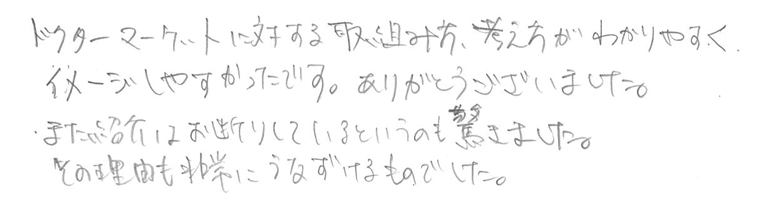 ドクターマーケットに対する取組み方、考え方がわかりやすく
イメージしやすかったです。ありがとうございました。
・また紹介はお断りしているというのも驚きました。
その理由も非常にうなずけるものでした。